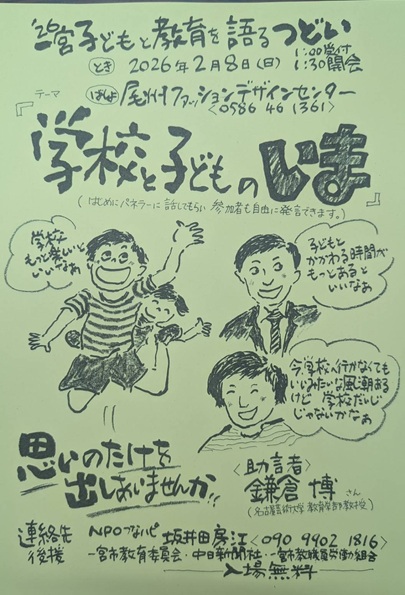 '26一宮子どもと教育を語るつどい
とき 2026年2月8日(日) 1:00受付 1:30開会
ばしょ 尾州ファッションデザインセンター
<0586 46 1361>
テーマ
『学校と子どものいま』
(はじめにパネラーに話してもらい 参加者も自由に発言できます。)
学校 もっと楽しいと いいなぁ
子どもと かかわる時間が もっとあると いいなぁ
今学校へ行かなくても いいみたいな風潮ある けど 学校だいじ じゃないかなぁ
思いのたけを
出しあいませんか!!
<助言者>
鎌倉 博さん
(名古屋芸術大学 教育学部 教授)
連絡先 NPOつなパピ 坂井田房江<090 9902 1816>
後援 一宮市教育委員会・中日新聞社・一宮市教職員労働組合
入場無料